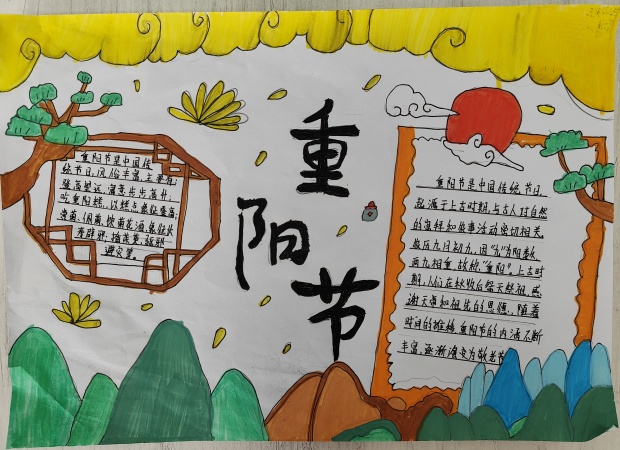 重
阳
节
重阳节是中国传
统节日,风俗丰富,主要有
登高望远,寓意步步高升,
吃重阳糕,以糕点象征登高,
赏菊、佩茱,饮菊花酒,象征长
寿辟邪;插茱萸,驱邪
避灾等。
重阳节是中国传统节日,
起源于上古时期,与古人对自然
的崇拜和农事活动密切相关。
农历九月初九,因“九”为阳数,
两九相重,故称“重阳”。上古时
期,人们在秋收后祭天祭祖,感
谢天帝和祖先的恩德。随着
时间的推移,重阳节的内涵不断
丰富,逐渐演变为敬老节